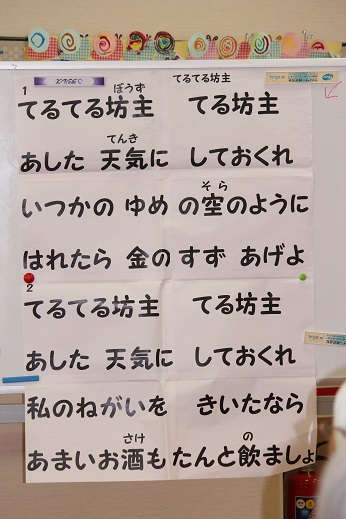 てるてる坊主
1
ぼうず
てるてる坊主 てる坊主
てんき
あした 天気に しておくれ
そら
いつかの ゆめ の空のように
はれたら 金の すず あげよ
2
てるてる坊主 てる坊主
あした 天気に しておくれ
私のねがいを きいたなら
さけ の
あまいお酒も たんと飲ましょ